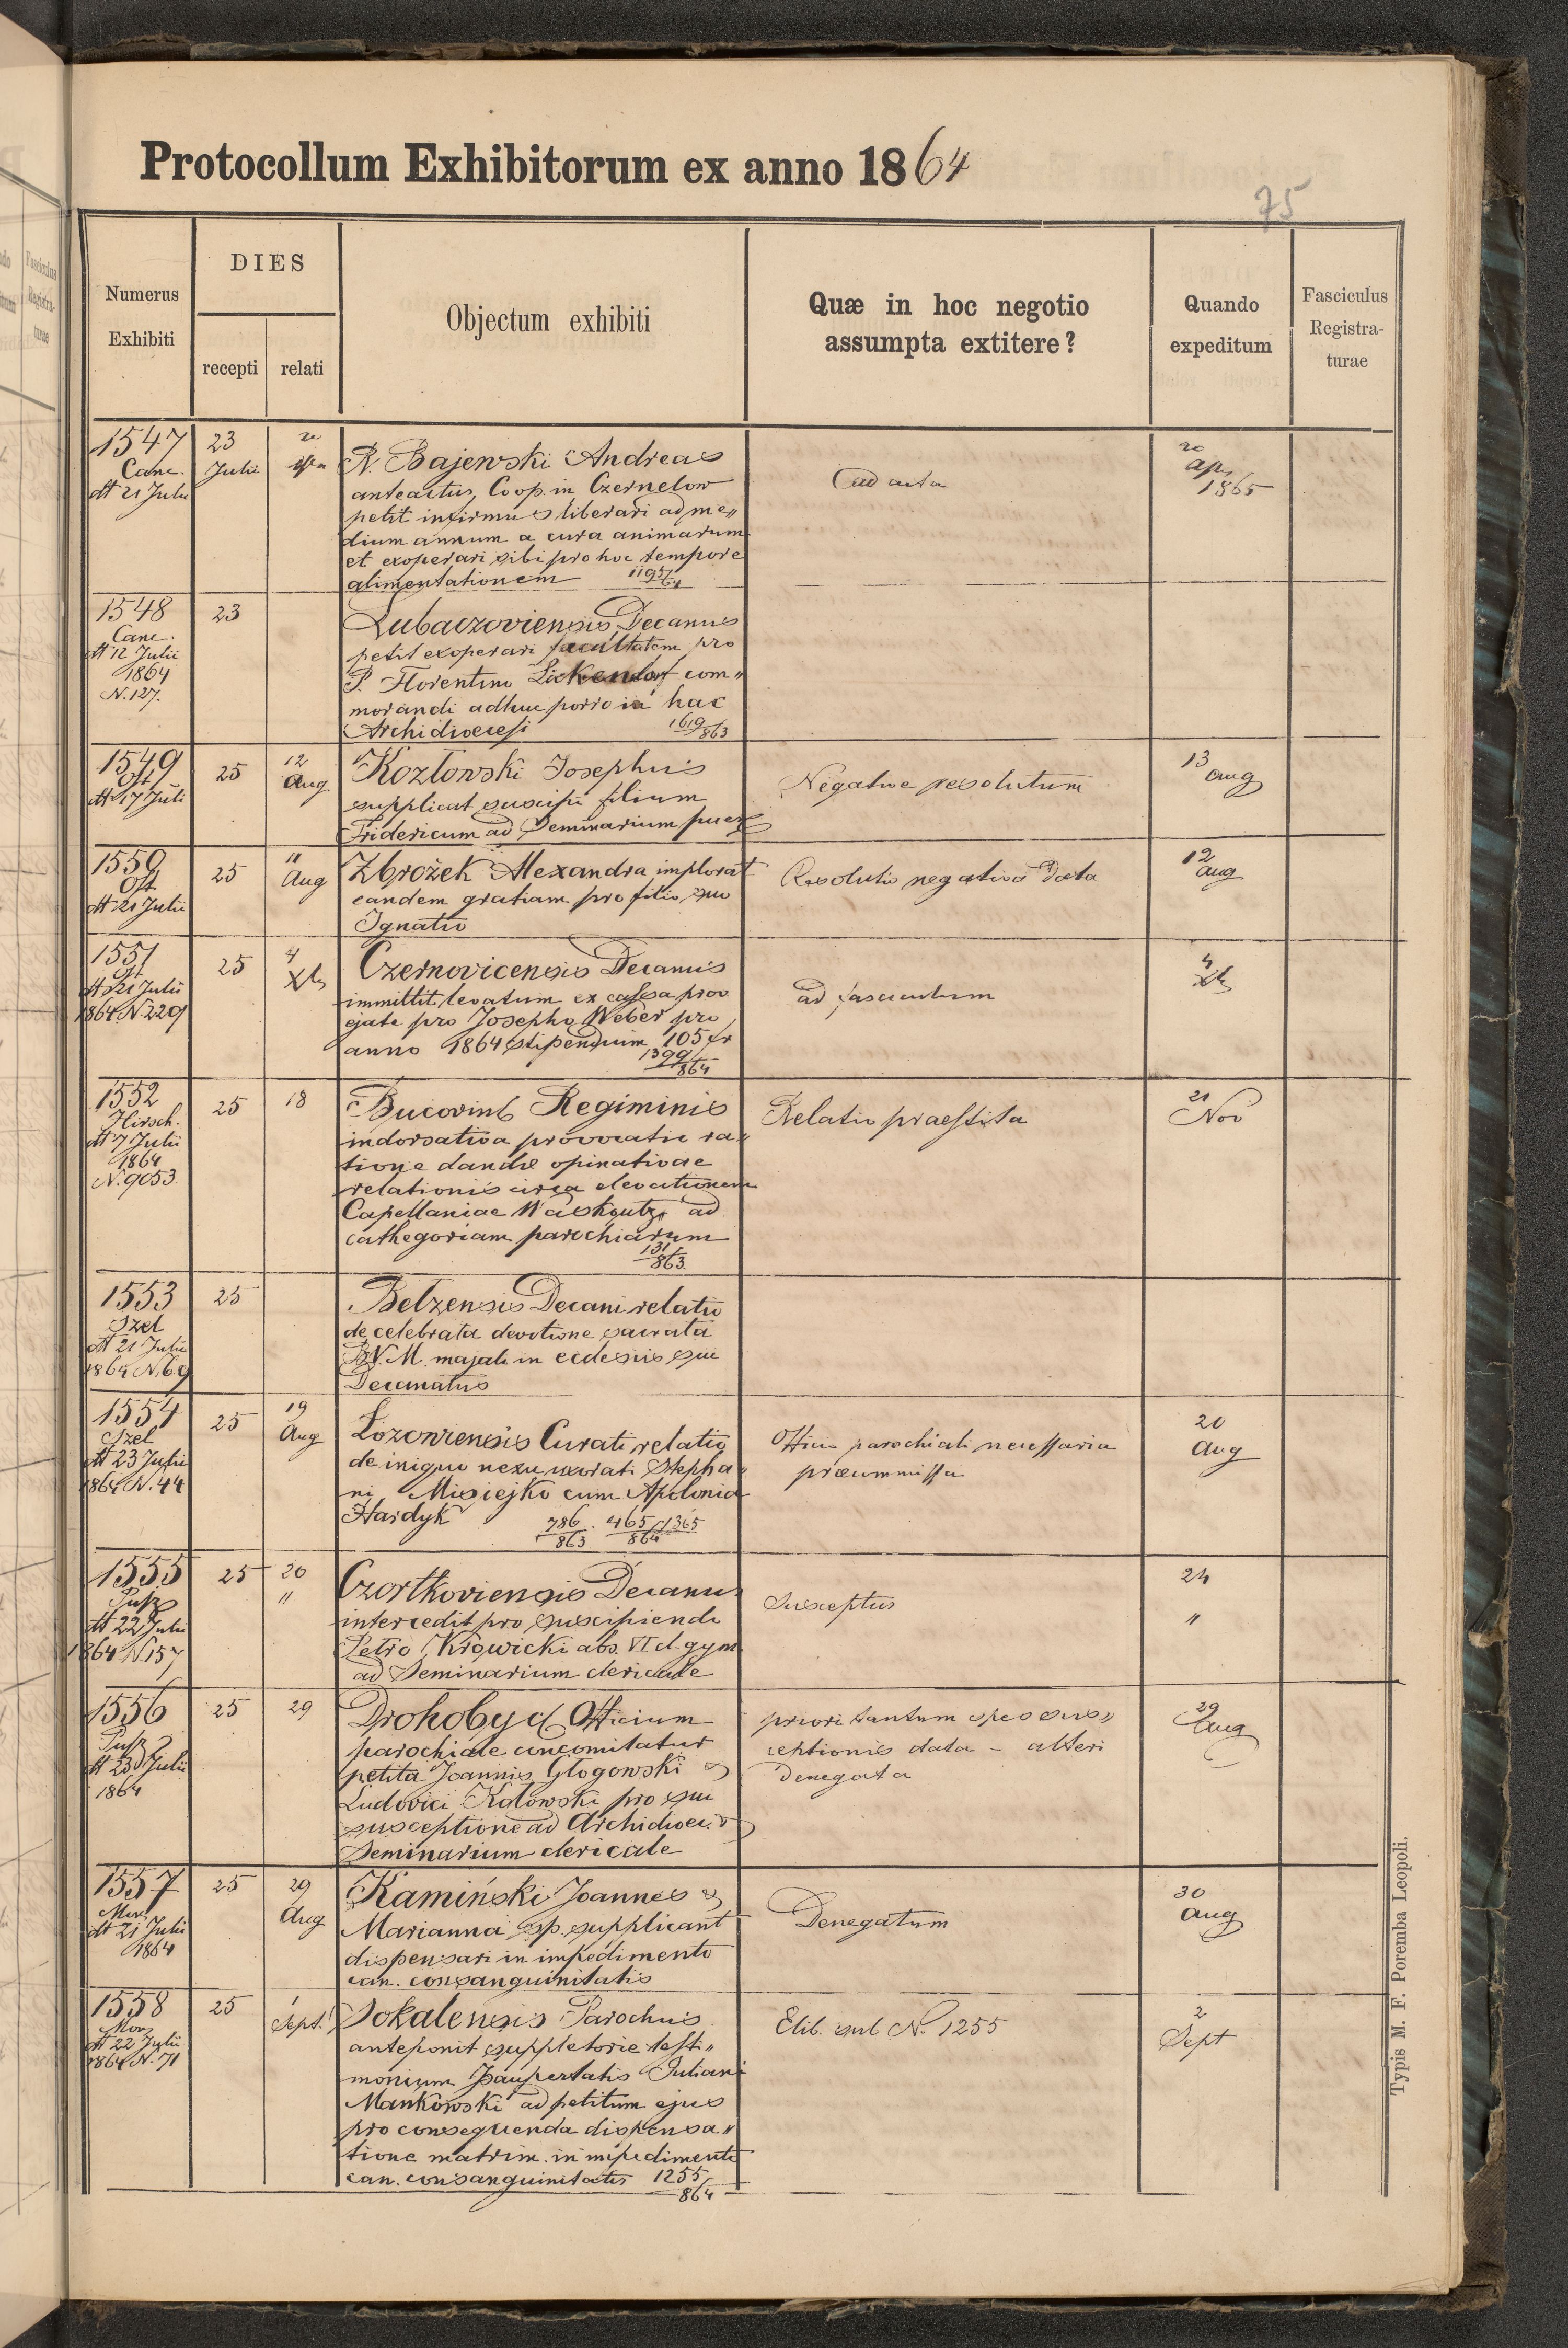 Protocollum Exhibitorum ex anno 1864
75
Numerus
Exhibiti
DIES
recepti
relati
Objectum exhibiti
Quæ in hoc negotio
assumpta extitere?
Quando
expeditum
Fasciculus
Registra-
turae
1547
Canc.
dt 21 Julii
23
Julii
R. Bajewski Andreas
anteactus Coop. in Czernelow
petit infirmus liberari ad me„
dium annum a cura animarum
et exoperari sibi pro hoc tempore
alimentationem 1195/64
ad acta
20
ap.
1865
1548
Canc.
dt 12 Julii
1864
N. 127.
23
Lubaczoviensis Decanus
petit exoperari facultatem pro
P. Florentino Lickendorf com„
morandi adhuc porro in hac
Archidiœcesi 1619/863
1549
Ost
dt 17 Juli
25
12
Aug
Kozłowski Josephus
supplicat suscipi filium
Fridericum ad Seminarium puer
Negative resolutum
13
aug
1550
Ost
dt 21 Julii
25
11
Aug
Zbrożek Alexandra implorat
eandem gratiam pro filio suo
Ignatio
Resolutio negativa data
12
aug
1551
Ost
dt 21 Julii
1864 N. 229
25
4
Xb
Czernovicensis Decanus
immittit levatum ex cassa prov
ejate pro Josepho Weber pro
anno 1864 stipendium 105 fr
1399/864
ad fasciculum
4
Xb
1552
Hirsch.
dt 7 Julii
1864
N. 9053.
25
18
Bucovinæ Regiminis
indorsativa provocatio ra„
tione dandæ opinativae
relationis circa elevationem
Capellaniae Waskoutz ad
cathegoriam parochiarum
131/863.
Relatio praestita
21
Nov
1553
Szel
dt 21 Julii
1864 N. 69
25
Belzensis Decani relatio
de celebrata devotione sacrata
B.V.M. majali in ecclesiis sui
Decanatus
1554
Szel
dt 23 Julii
1864 N. 44
25
19
Aug
Łozowiensis Curati relatio
de iniquo nexu uxorati Stepha„
ni Misiejko cum Apolonia
Hardyk 786/863. 465/864 1365
Officio parochiali necessaria
præummissa
20
Aug
1555
dt 22 Julii
1864 N. 157
25
20
"
Czortkoviensis Decanus
intercedit pro suscipiendo
Petro Krowicki abs. VI. cl. gym
ad Seminarium clericale
Susceptus
24
"
1556
dt 23 Julii
1864
25
29
Drohobycz Officium
parochiale concomitatur
petita Joannis Głogowski &
Ludovici Kotowski pro sui
susceptione ad Archidioec.
Seminarium clericale
priori tantum spes sus„
ceptionis data – alteri
denegata
29
Aug
1557
Mor
dt 21 Julii
1864
25
29
Aug
Kamiński Joannes &
Marianna sp. supplicant
dispensari in impedimento
can. consanguinitatis
Denegatum
30
Aug
1558
Mor
dt 22 Julii
1864 N. 71
25
1
Sept.
Sokalensis Parochus
anteponit suppletorie testi„
monium paupertatis Juliani
Mankowski ad petitum ejus
pro consequenda dispensa„
tione matrim. in impedimento
can. consanguinitatis 1255/864
Elib. sub N. 1255
2
Sept
Typis M. F. Poremba Leopoli.